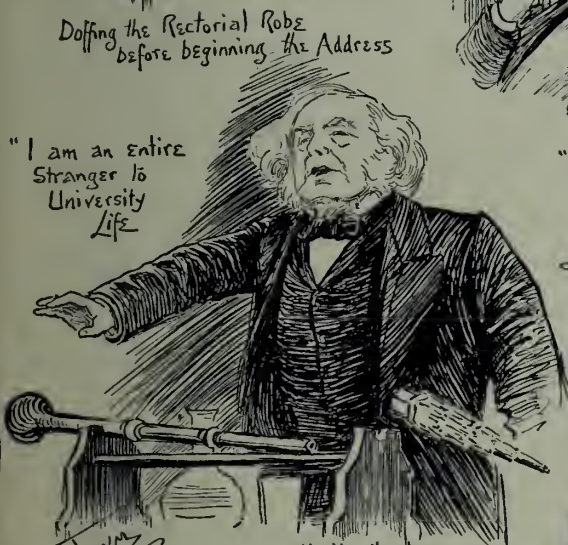 Doffing the Rectorial Robe
before beginning the Address
"I am an Entire
Stranger to
University
Life